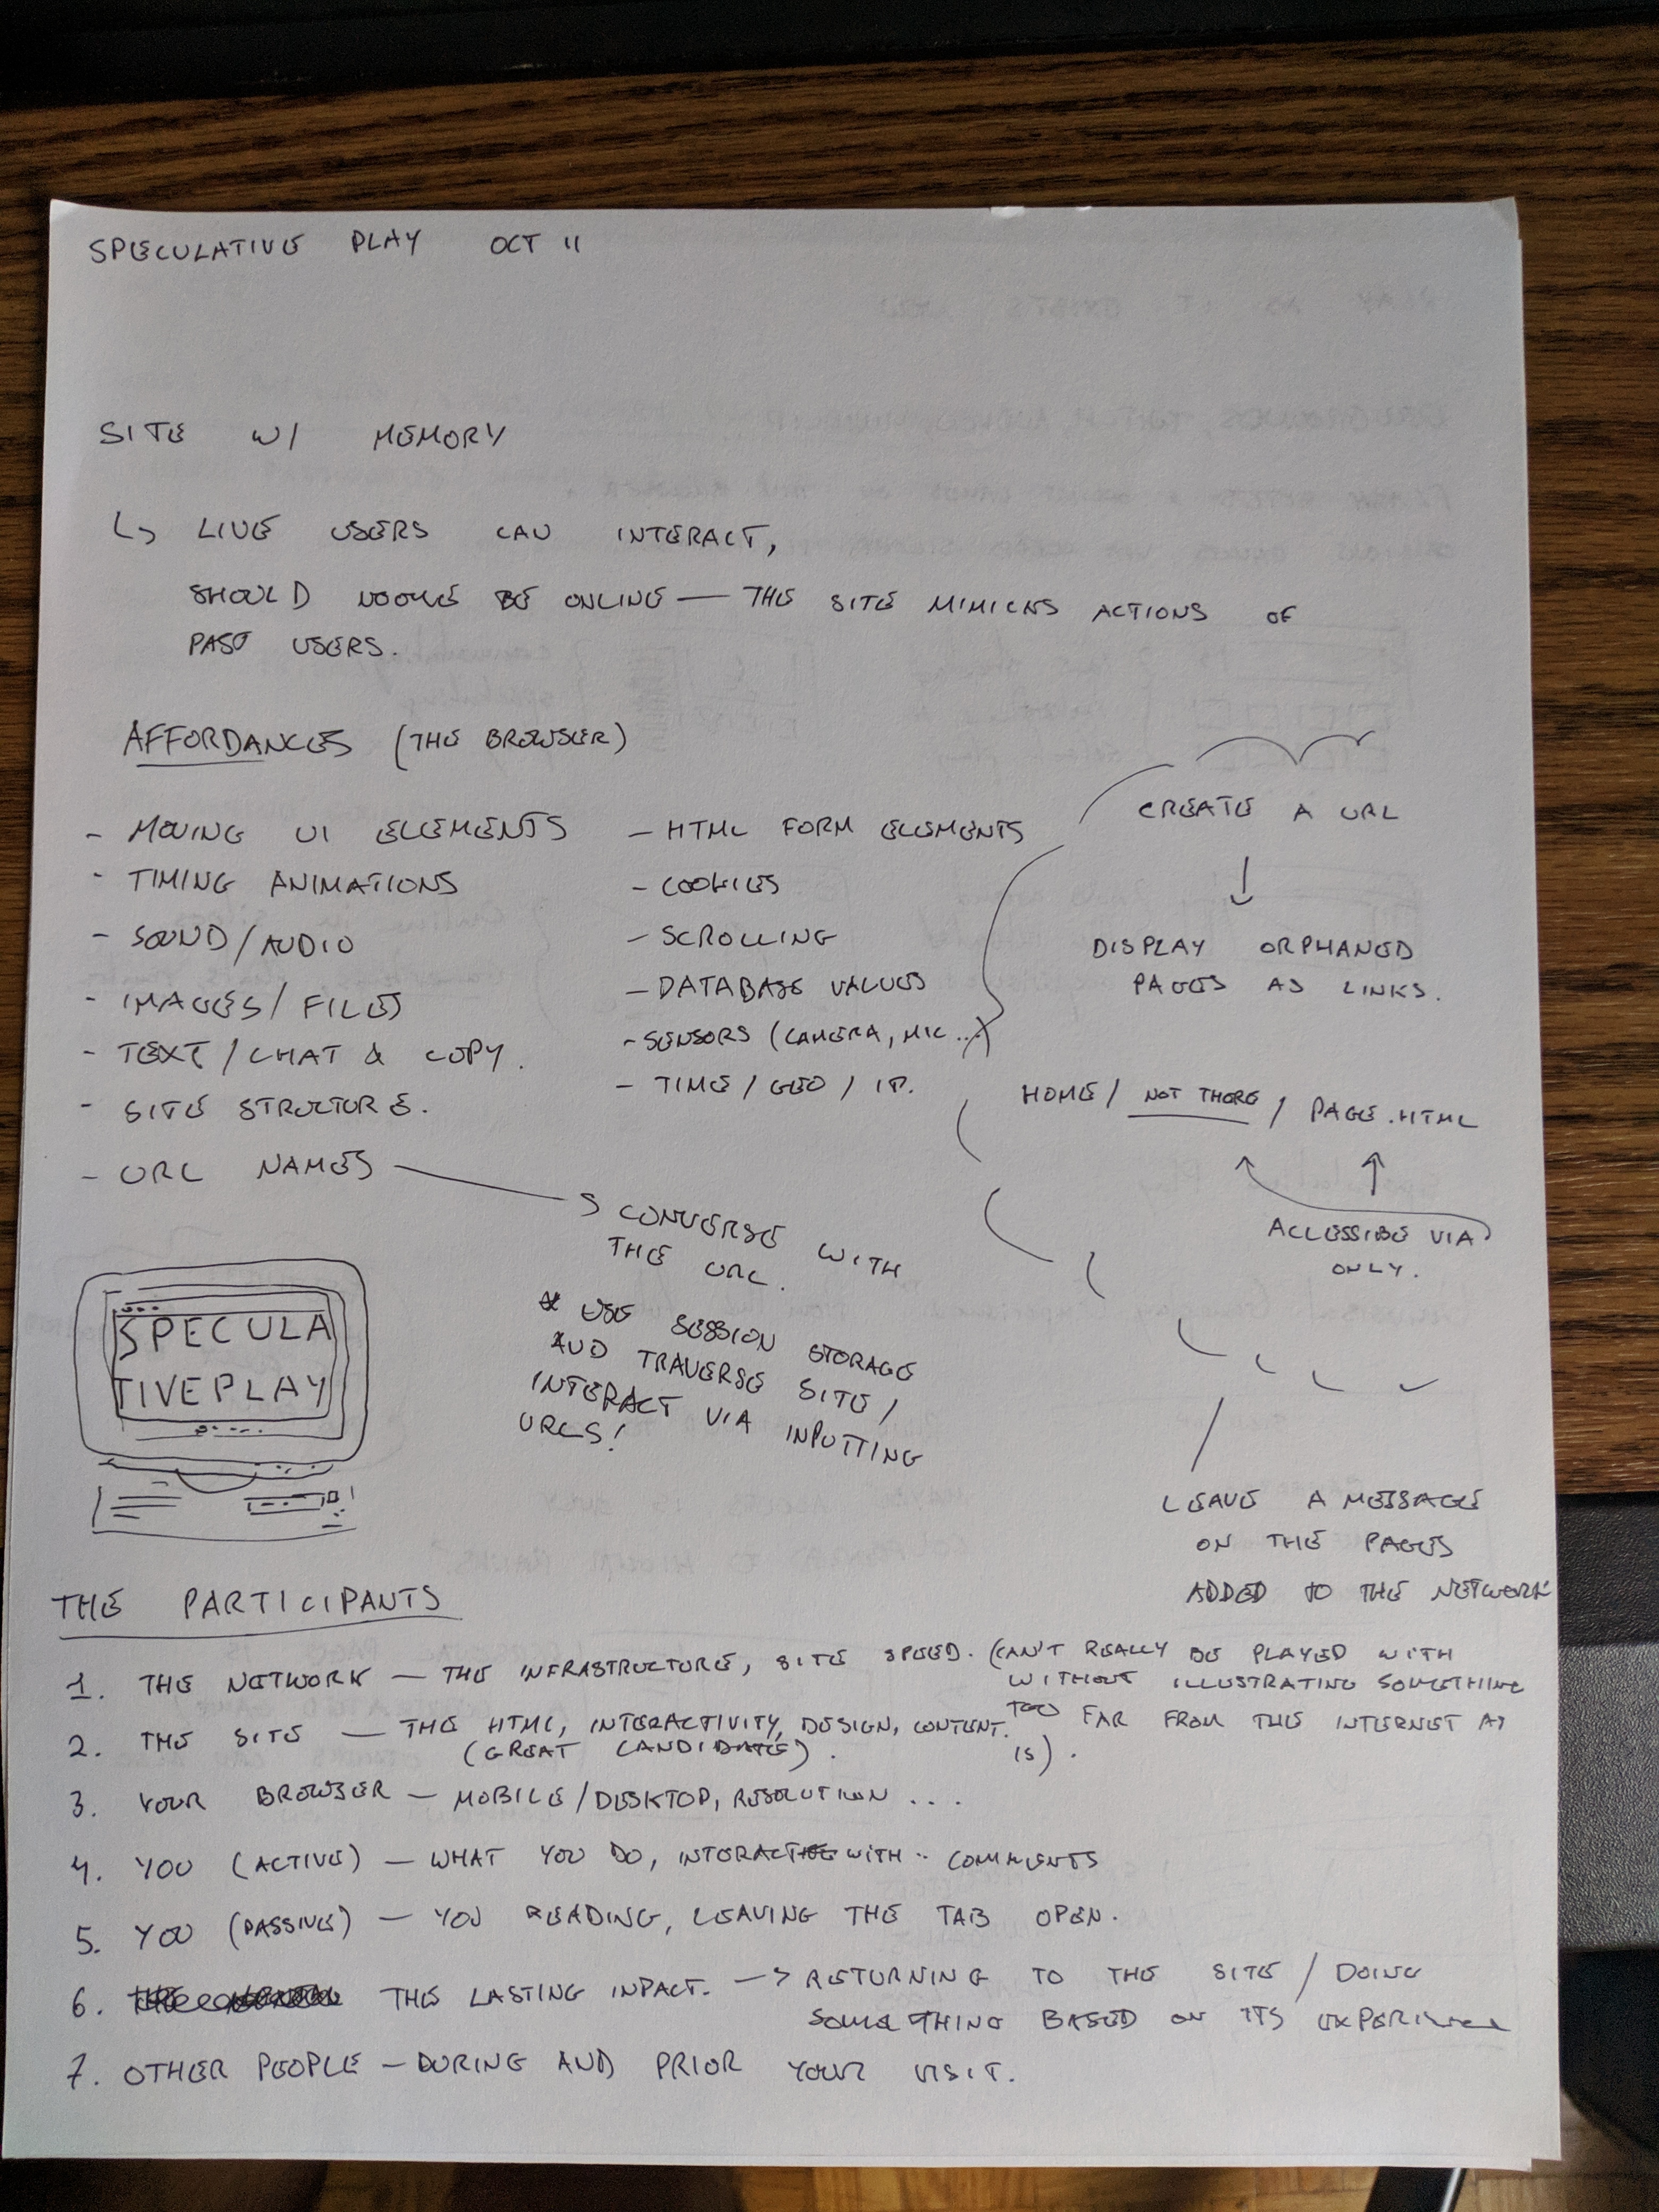 SPECULATIVE PLAY OCT 11
SITE W/ MEMORY
LIVE USERS CAN INTERACT,
SHOULD NOONE BE ONLINE — THE SITE MIMICKS ACTIONS OF
PAST USERS.
AFFORDANCES (THE BROWSER)
- MOVING UI ELEMENTS
- TIMING ANIMATIONS
- SOUND/AUDIO
- IMAGES/FILES
- TEXT/CHAT & COPY.
- SITE STRUCTURE.
- URL NAMES
- HTML FORM ELEMENTS
- COOKIES
- SCROLLING
- DATABASE VALUES
- SENSORS (CAMERA, MIC...)
- TIME/GEO/IP.
CREATE A URL
DISPLAY ORPHANED
PAGES AS LINKS.
HOME/ NOT THERE / PAGE.HTML
ACCESSIBE VIA
ONLY.
CONVERSE WITH
THE URL.
* USE SESSION STORAGE
AND TRAVERSE SITE/
INTERACT VIA INPUTTING
URLS!
SPECULA
TIVEPLAY
LEAVE A MESSAGE
ON THE PAGES
ADDED TO THE NETWORK
THE PARTICIPANTS
1. THE NETWORK — THE INFRASTRUCTURE, SITE SPEED. (CAN'T REALLY BE PLAYED WITH
WITHOUT ILLUSTRATING SOMETHING
TOO FAR FROM THE INTERNET AS
IS).
2. THE SITE — THE HTML, INTERACTIVITY, DESIGN, CONTENT.
(GREAT CANDIDATE).
3. YOUR BROWSER — MOBILE/DESKTOP, RESOLUTION ...
4. YOU (ACTIVE) — WHAT YOU DO, INTERACT WITH.. COMMENTS
5. YOU (PASSIVE) — YOU READING, LEAVING THE TAB OPEN.
6. THE LASTING INPACT. -> RETURNING TO THE SITE / DOING
SOMETHING BASED ON ITS EXPERIENCE
7. OTHER PEOPLE — DURING AND PRIOR YOUR VISIT.